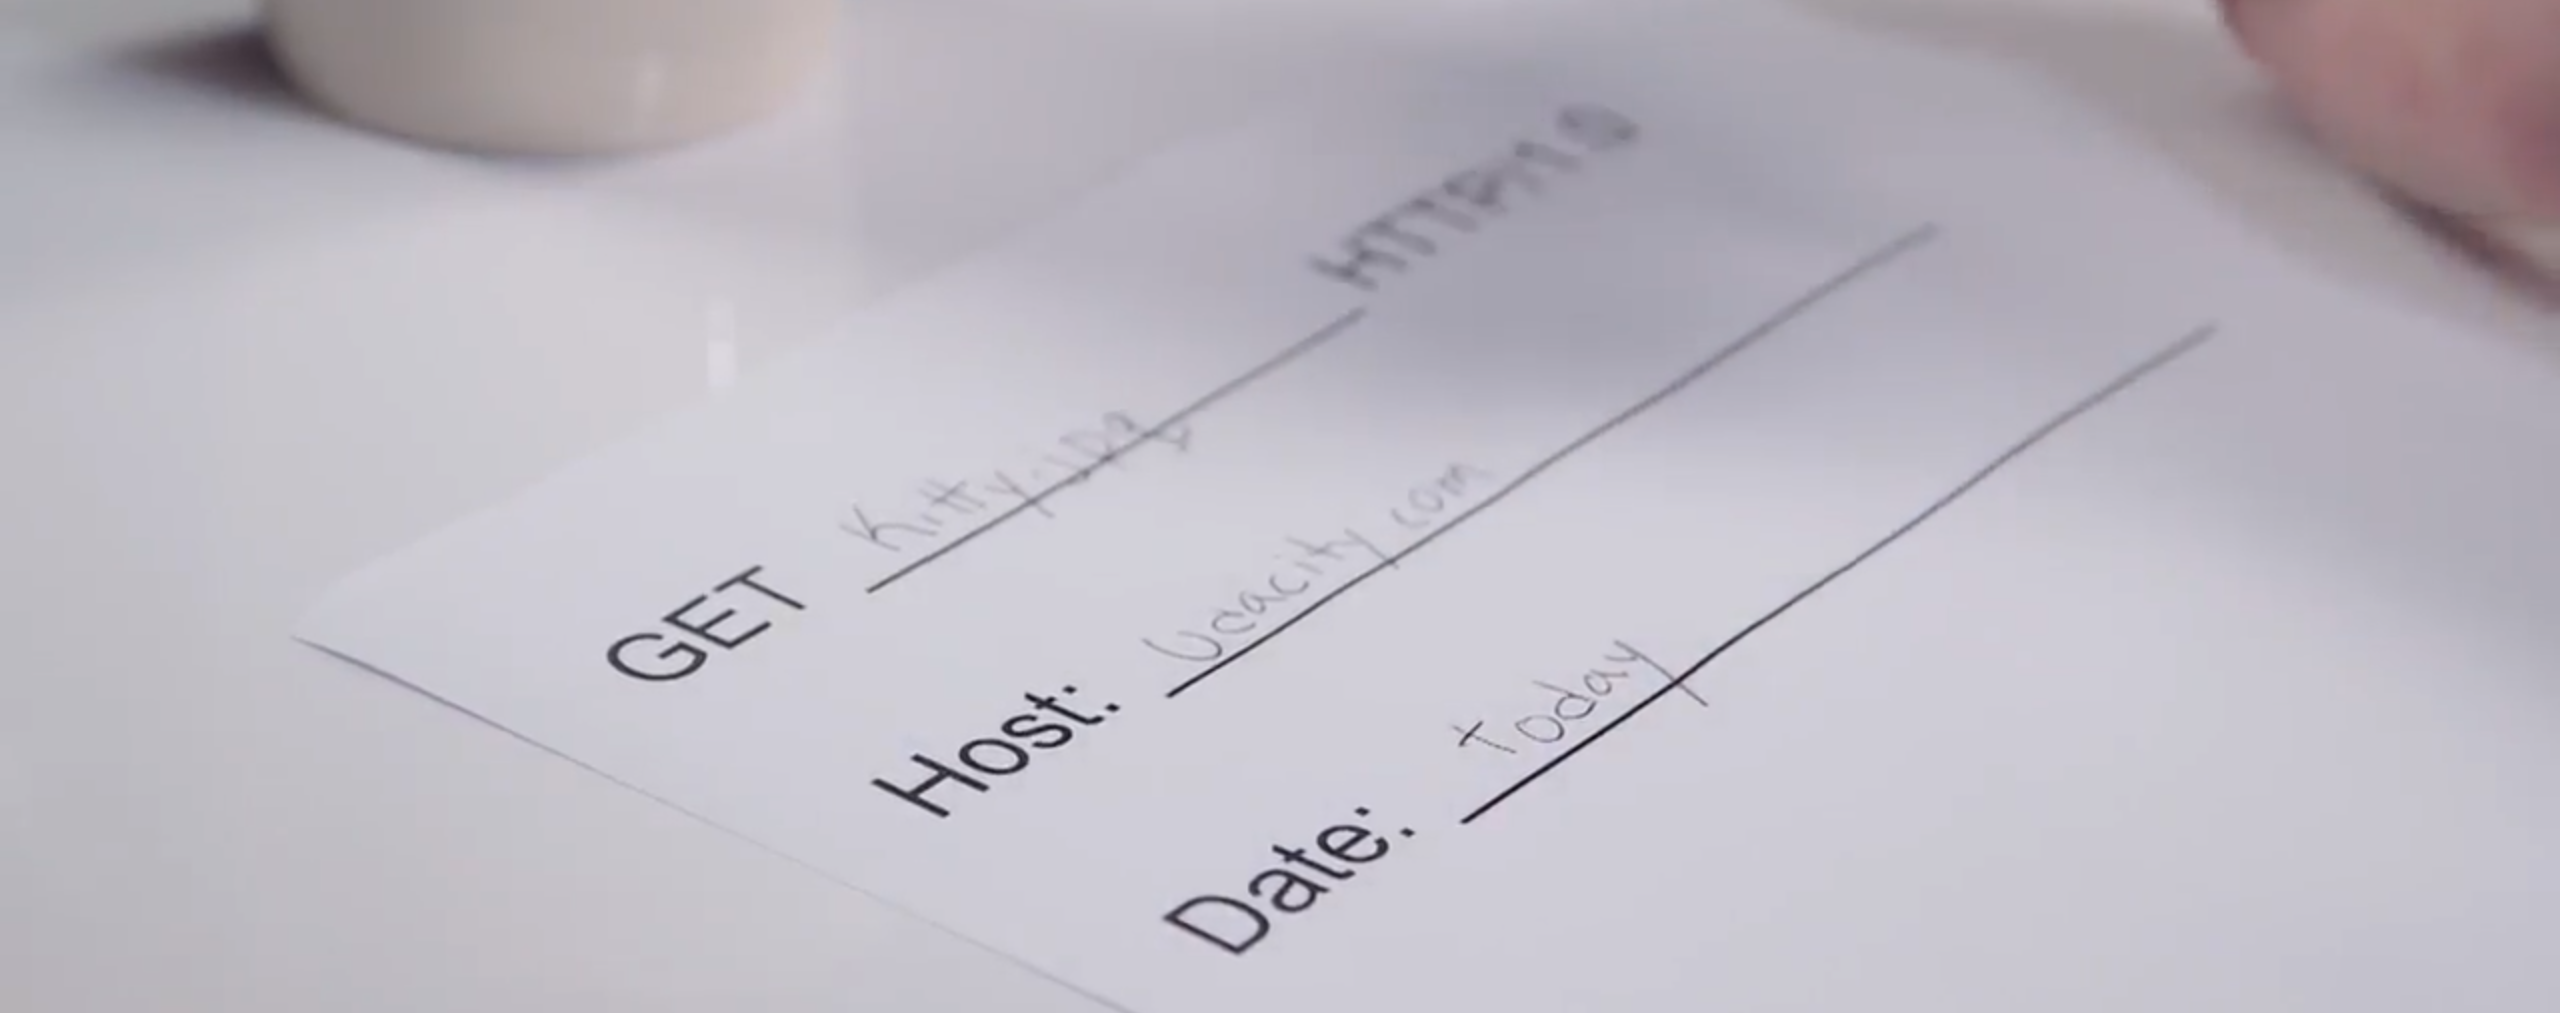 GET Kitty.jpg HTTP/1.0
Host: Udacity.com
Date: Today